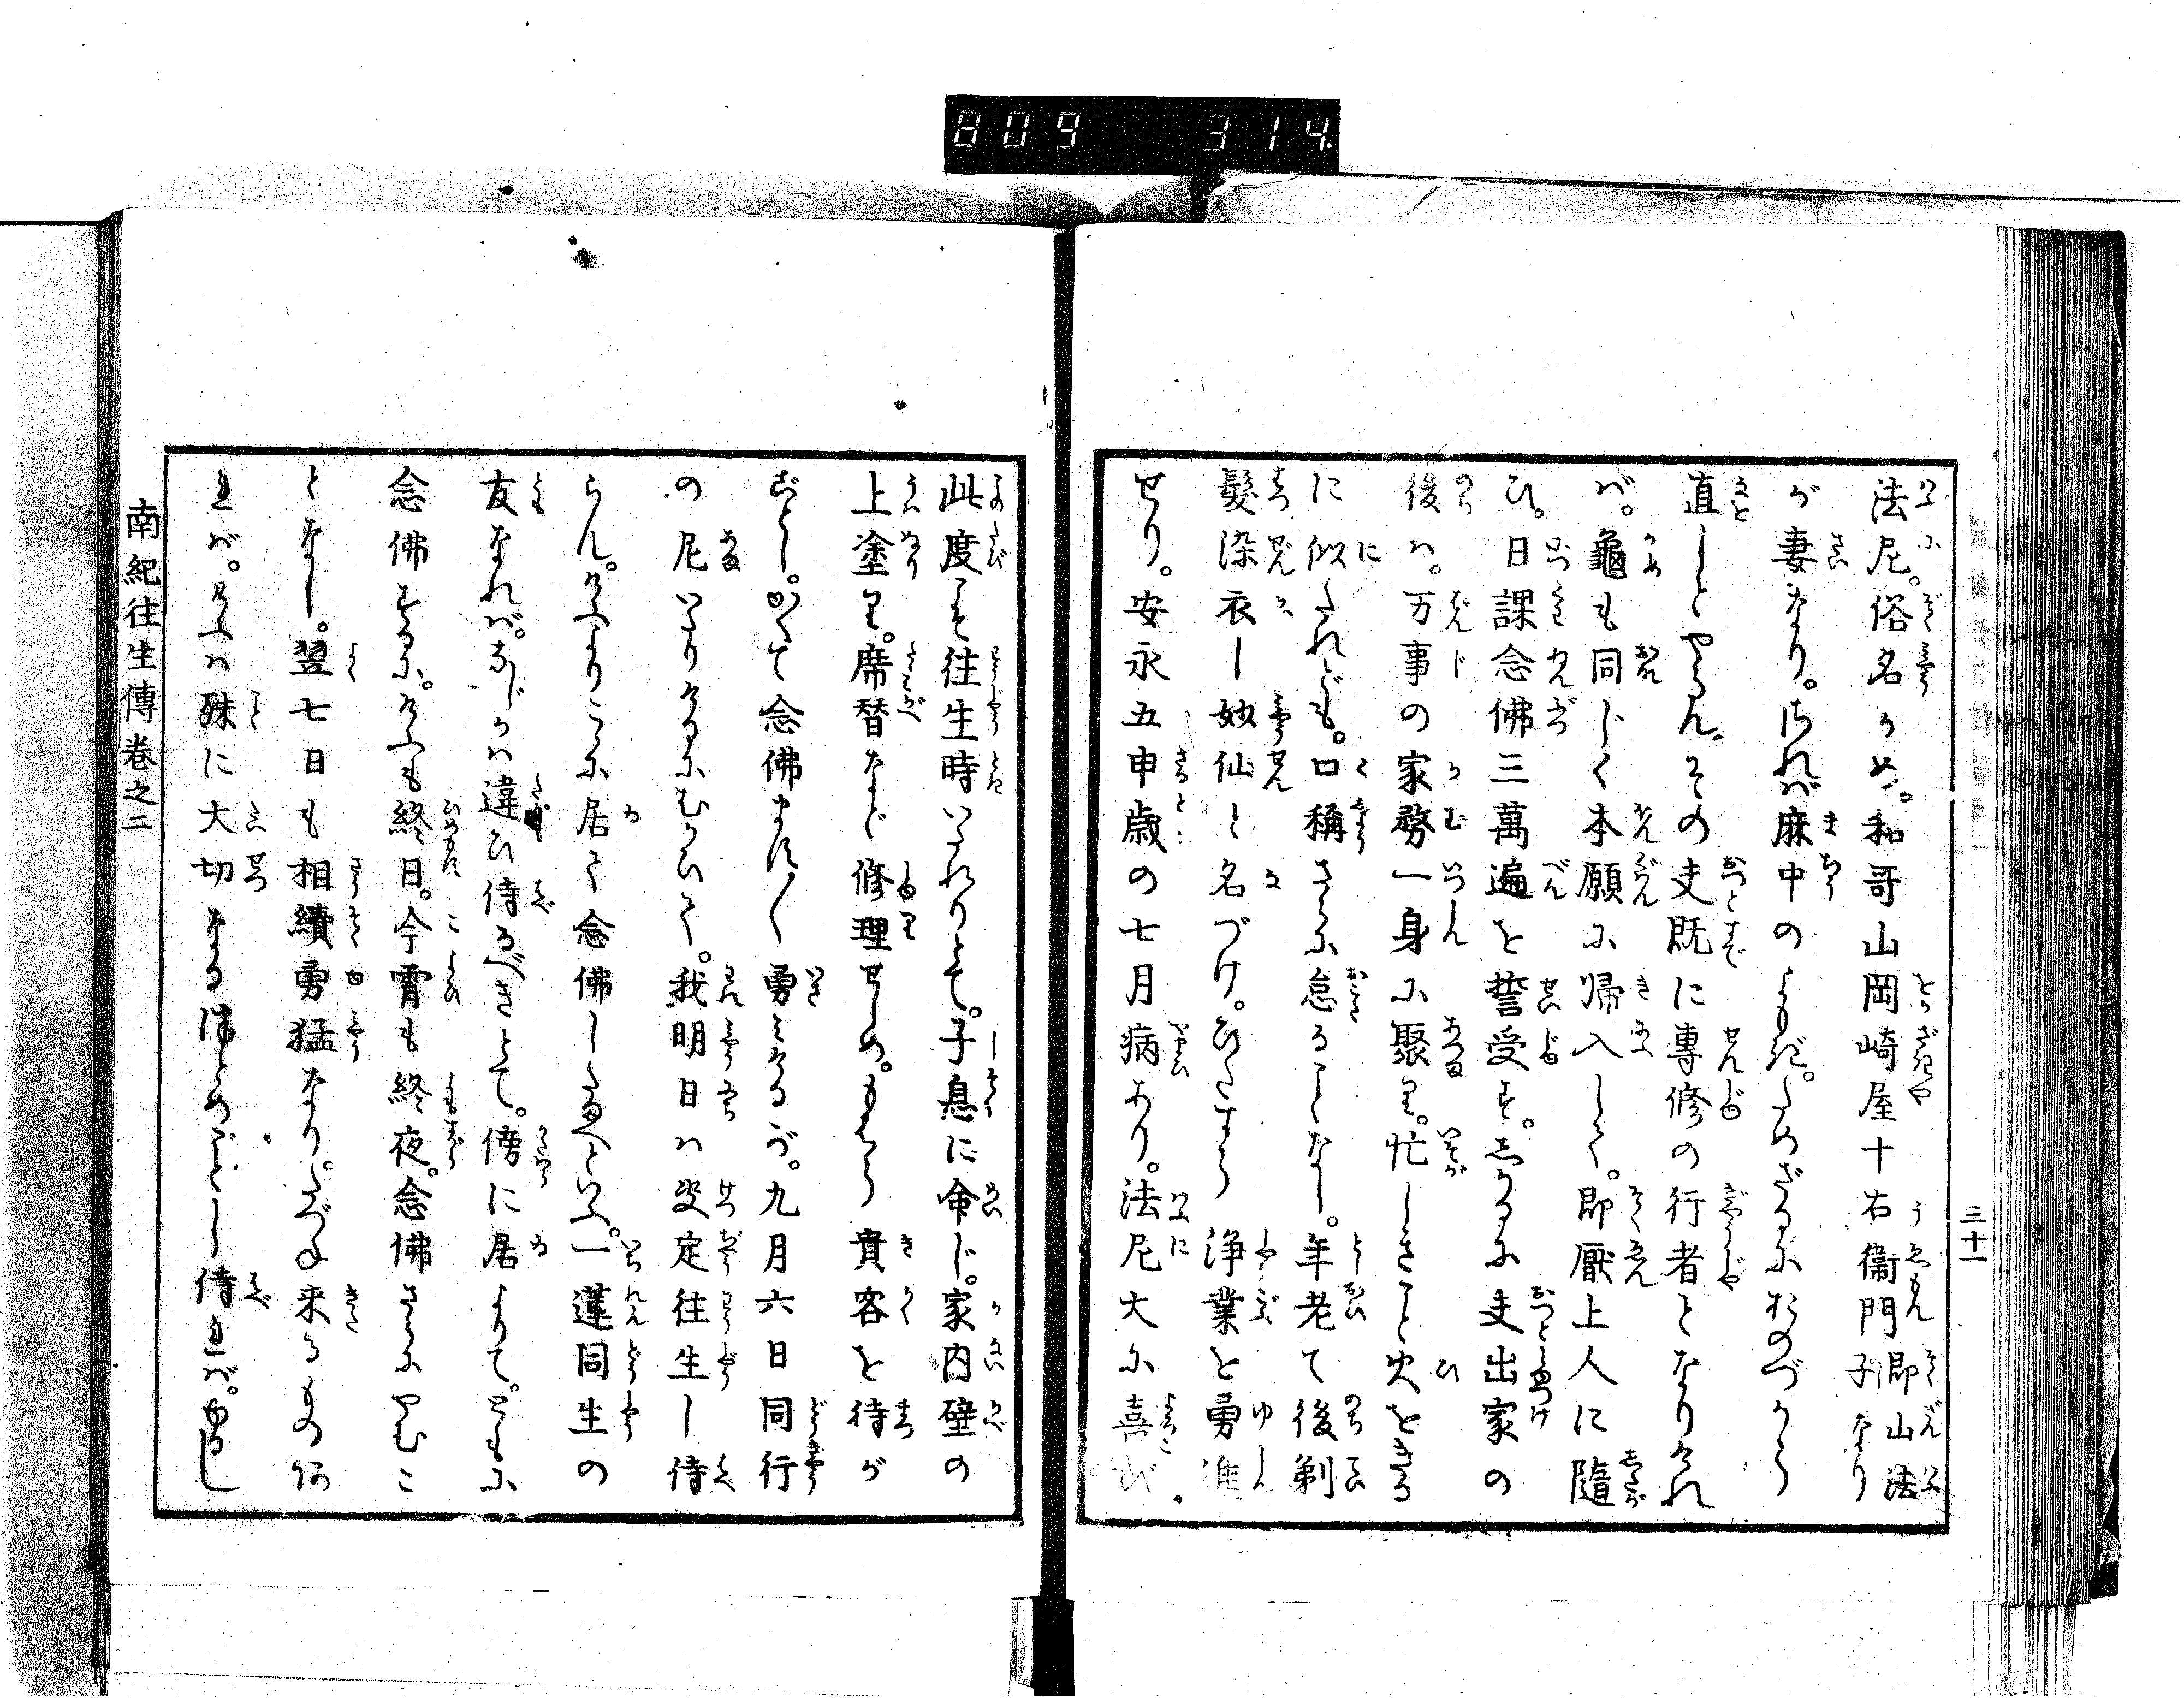 809 314.
三十一
法尼。俗名かめ。和哥山岡崎屋十右衞門子なり即山法
が妻なり。されば麻中のよもぎ。ためざるにおのづから
直しとやらん。その夫既に專修の行者となりけれ
ば。龜も同じく本願に帰入して。即厭上人に隨
ひ。日課念佛三萬遍を誓受す。しかるに夫出家の
後ハ。万事の家務一身に聚り。忙しきこと火をきる
に似たれども。口稱さらに怠ることなし。年老て後剃
髮染衣し妙仙と名づけ。ひたすら淨業を勇進
せり。安永五申歳の七月病あり。法尼大に喜び
此度こそ往生時いたれりとて。子息に命じ。家内壁の
上塗り。席替など修理せしめ。もはら貴客を待が
ごとし。かくて念佛ます〱勇みけるが。九月六日同行
の尼いたりけるにむかひて。我明日ハ决定往生し侍
らん。けふよりこゝに居て念佛したまへといふ。一蓮同生の
友なれば。なじかハ違ひ侍るべきとて。傍に居よりて。ともに
念佛するに。けふも終日。今宵も終夜。念佛さらにやむこ
となし。翌七日も相續勇猛なり。たづね来るもの何
れば。けふハ殊に大切なるつとめどし侍れば。ゆるし
南紀往生傳卷之二